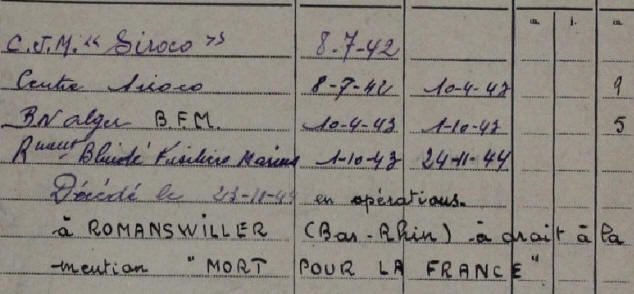 a. j. a.
C.J.M. "Siroco" 8-7-42
Centre Siroco 8-7-42 10-4-43 9
BN alger B.F.M. 10-4-43 1-10-43 5
R^ment Blindé Fusiliers Marins 1-10-43 24-11-44
Décédé le 23-11-44 en opérations.
à ROMANSWILLER (Bas-Rhin) - à droit à la
mention "MORT POUR LA FRANCE"